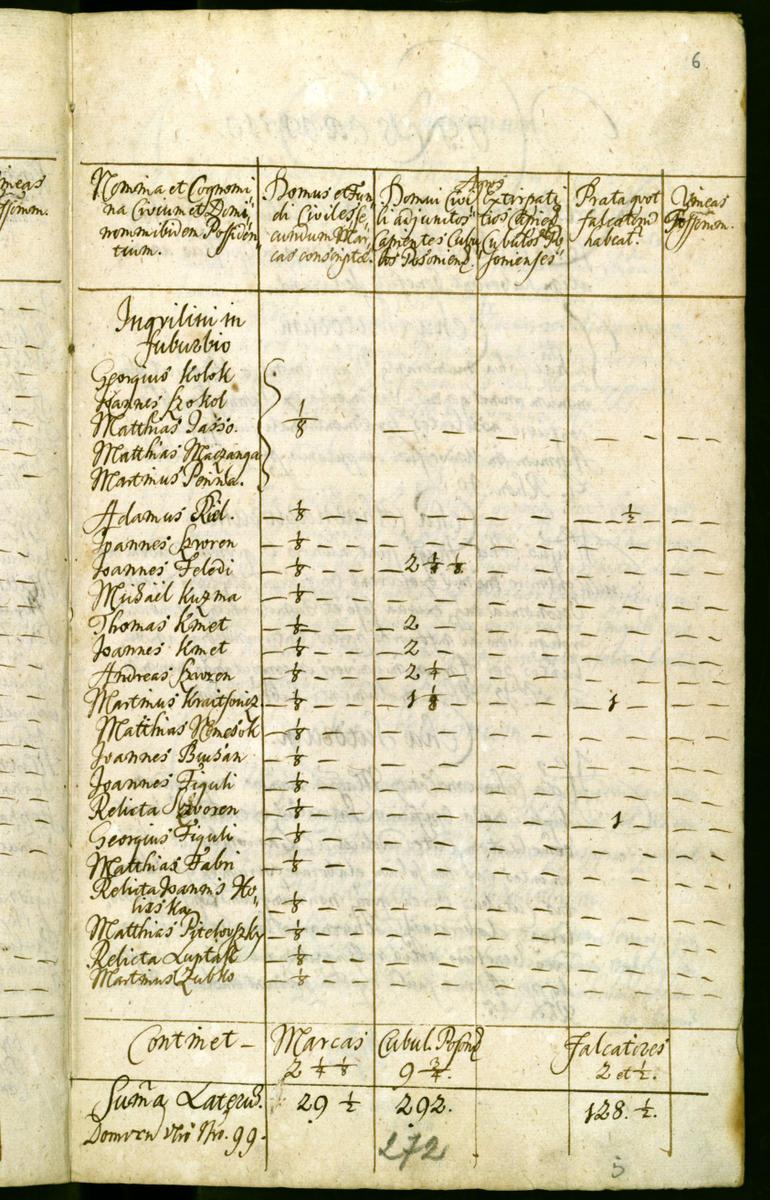 6
Nomina et Cognomi
na Civium et Domi,,
norum ibidem Possiden,,
tium.
Domus et Fun
di Civiles se,,
cundum Mar,,
cas conscriptæ.
Agros
Domui Civi
li adjunctos
Capientes Cubu
los Posonienz.
Extirpati
tios
Cubulos Po
sonienses
Prata quot
falcatorum
habeat.
Vineas
Fossorum.
Inquilini in
suburbio
Georgius Kolok
Joannes Szokol
Matthias Jasso. 1/8 — — — — — — — — —
Matthias Maczanga
Martinus Penna.
Adamus Riel. — 1/8 — — — — — — — 1/2 — —
Joannes Szvoren — 1/8 — — — — — — — — — —
Joannes Feledi — 1/8 — — 2 1/8 1/8 — — — — — —
Michael Kuzma — 1/8 — — — — — — — — — —
Thomas Kmet — 1/8 — — 2 — — — — — — —
Joannes Kmet — 1/8 — — 2 — — — — — — —
Andreas Szvoren — 1/8 — — 2 1/4 — — — — — — —
Martinus Kraitsovicz — 1/8 — — 1 1/8 — — — 1 — —
Matthias Nemesok — 1/8 — — — — — — — — — —
Joannes Bussan — 1/8 — — — — — — — — — —
Joannes Figuli — 1/8 — — — — — — — — — —
Relicta Szvoren — 1/8 — — — — — — — 1 — —
Georgius Figuli — 1/8 — — — — — — — — — —
Matthias Fabri — 1/8 — — — — — — — — — —
Relicta Joannis Ho,,
lizska — 1/8 — — — — — — — — — —
Matthias Pitelovszky — 1/8 — — — — — — — — — —
Relicta Luptak — 1/8 — — — — — — — — — —
Martinus Zubko — 1/8 — — — — — — — — — —
Continet — Marcas Cubul. Poson. Falcatores
2 1/4 1/8 9 3/4. 2 et 1/2.
Suma Laterum. 29 1/2 292. 128. 1/2.
Domorum Nro. 99.
272
5